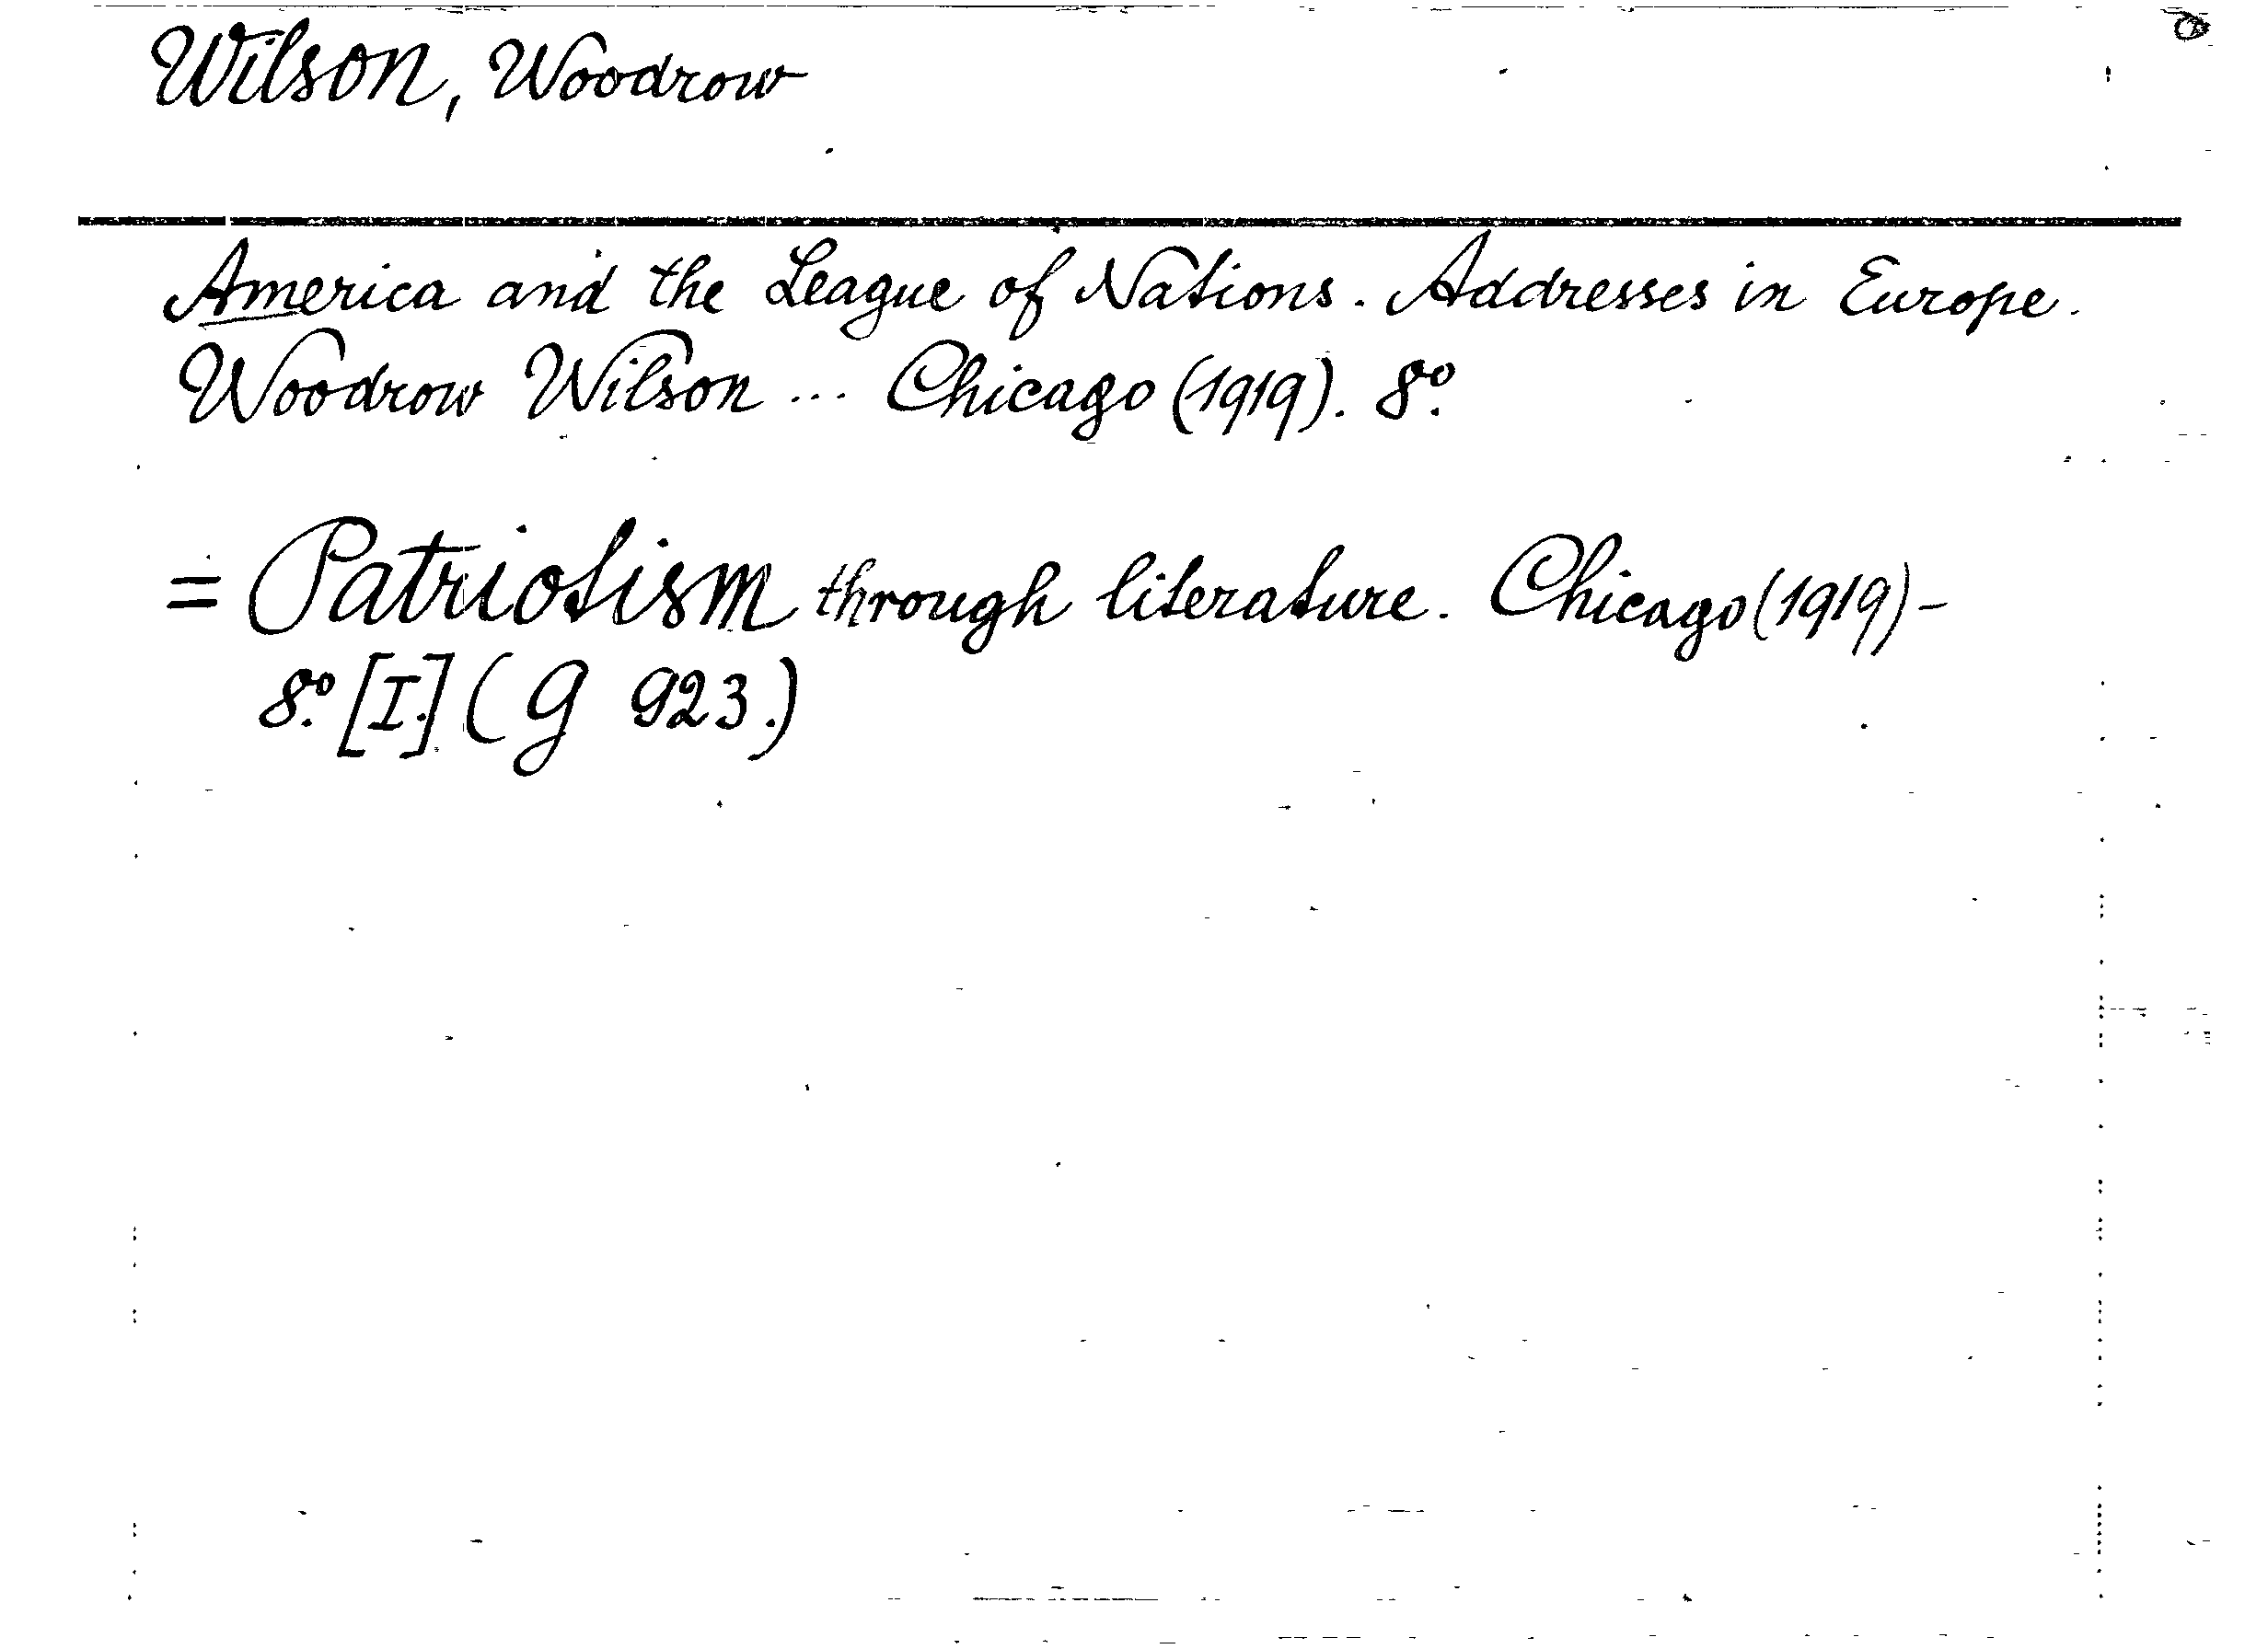 Wilson, Woodrow
America and the League of Nations. Addresses in Europe.
Woodrow Wilson ... Chicago (1919). 8º.
= Patriotism through literature. Chicago (1919)-
8º. [I.] (G 923.)